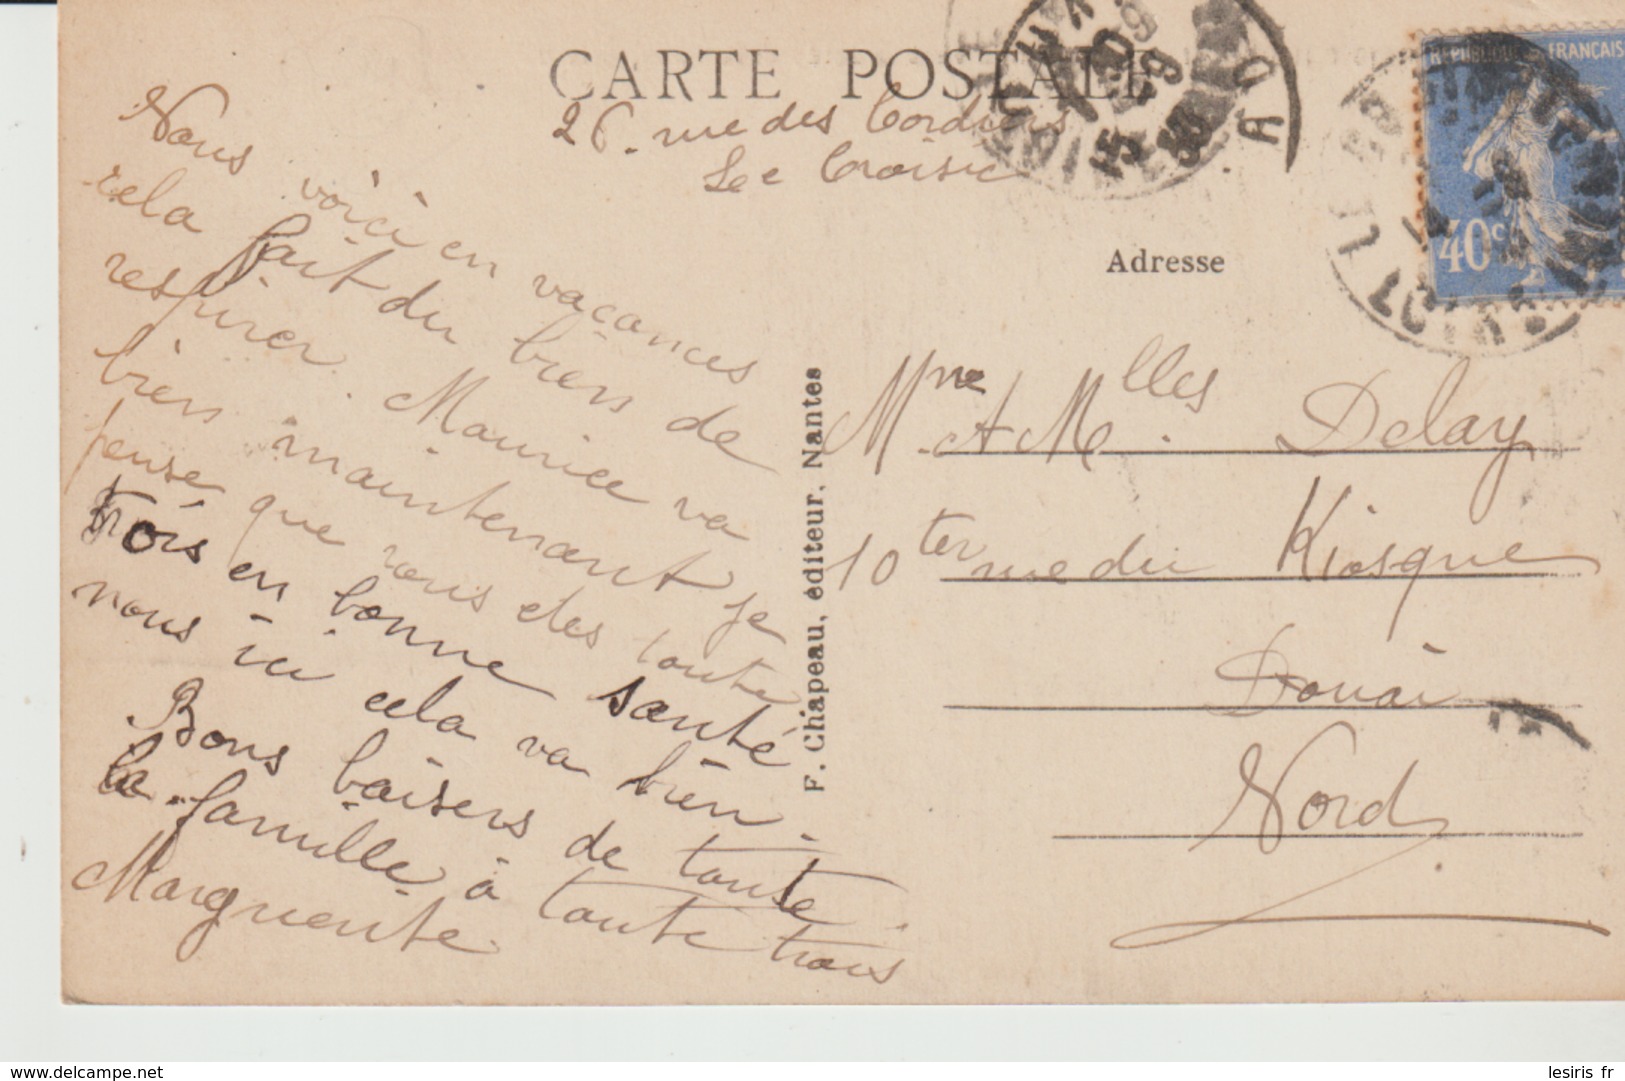 CARTE POSTALE
26. rue des Cordiers
Le Croisic
Nous voici en vacances
cela fait du bien de
respirer. Maurice va
bien maintenant je
pense que vous êtes toute
trois en bonne santé
nous ici cela va bien.
Bons baisers de toute
la famille à toute trois
Marguerite
F. Chapeau, éditeur, Nantes
REPUBLIQUE FRANÇAIS
40c
Adresse
Mme et Melles Delay
10 ter rue du Kiosque
Douai
Nord
www.delcampe.net
lesiris_fr